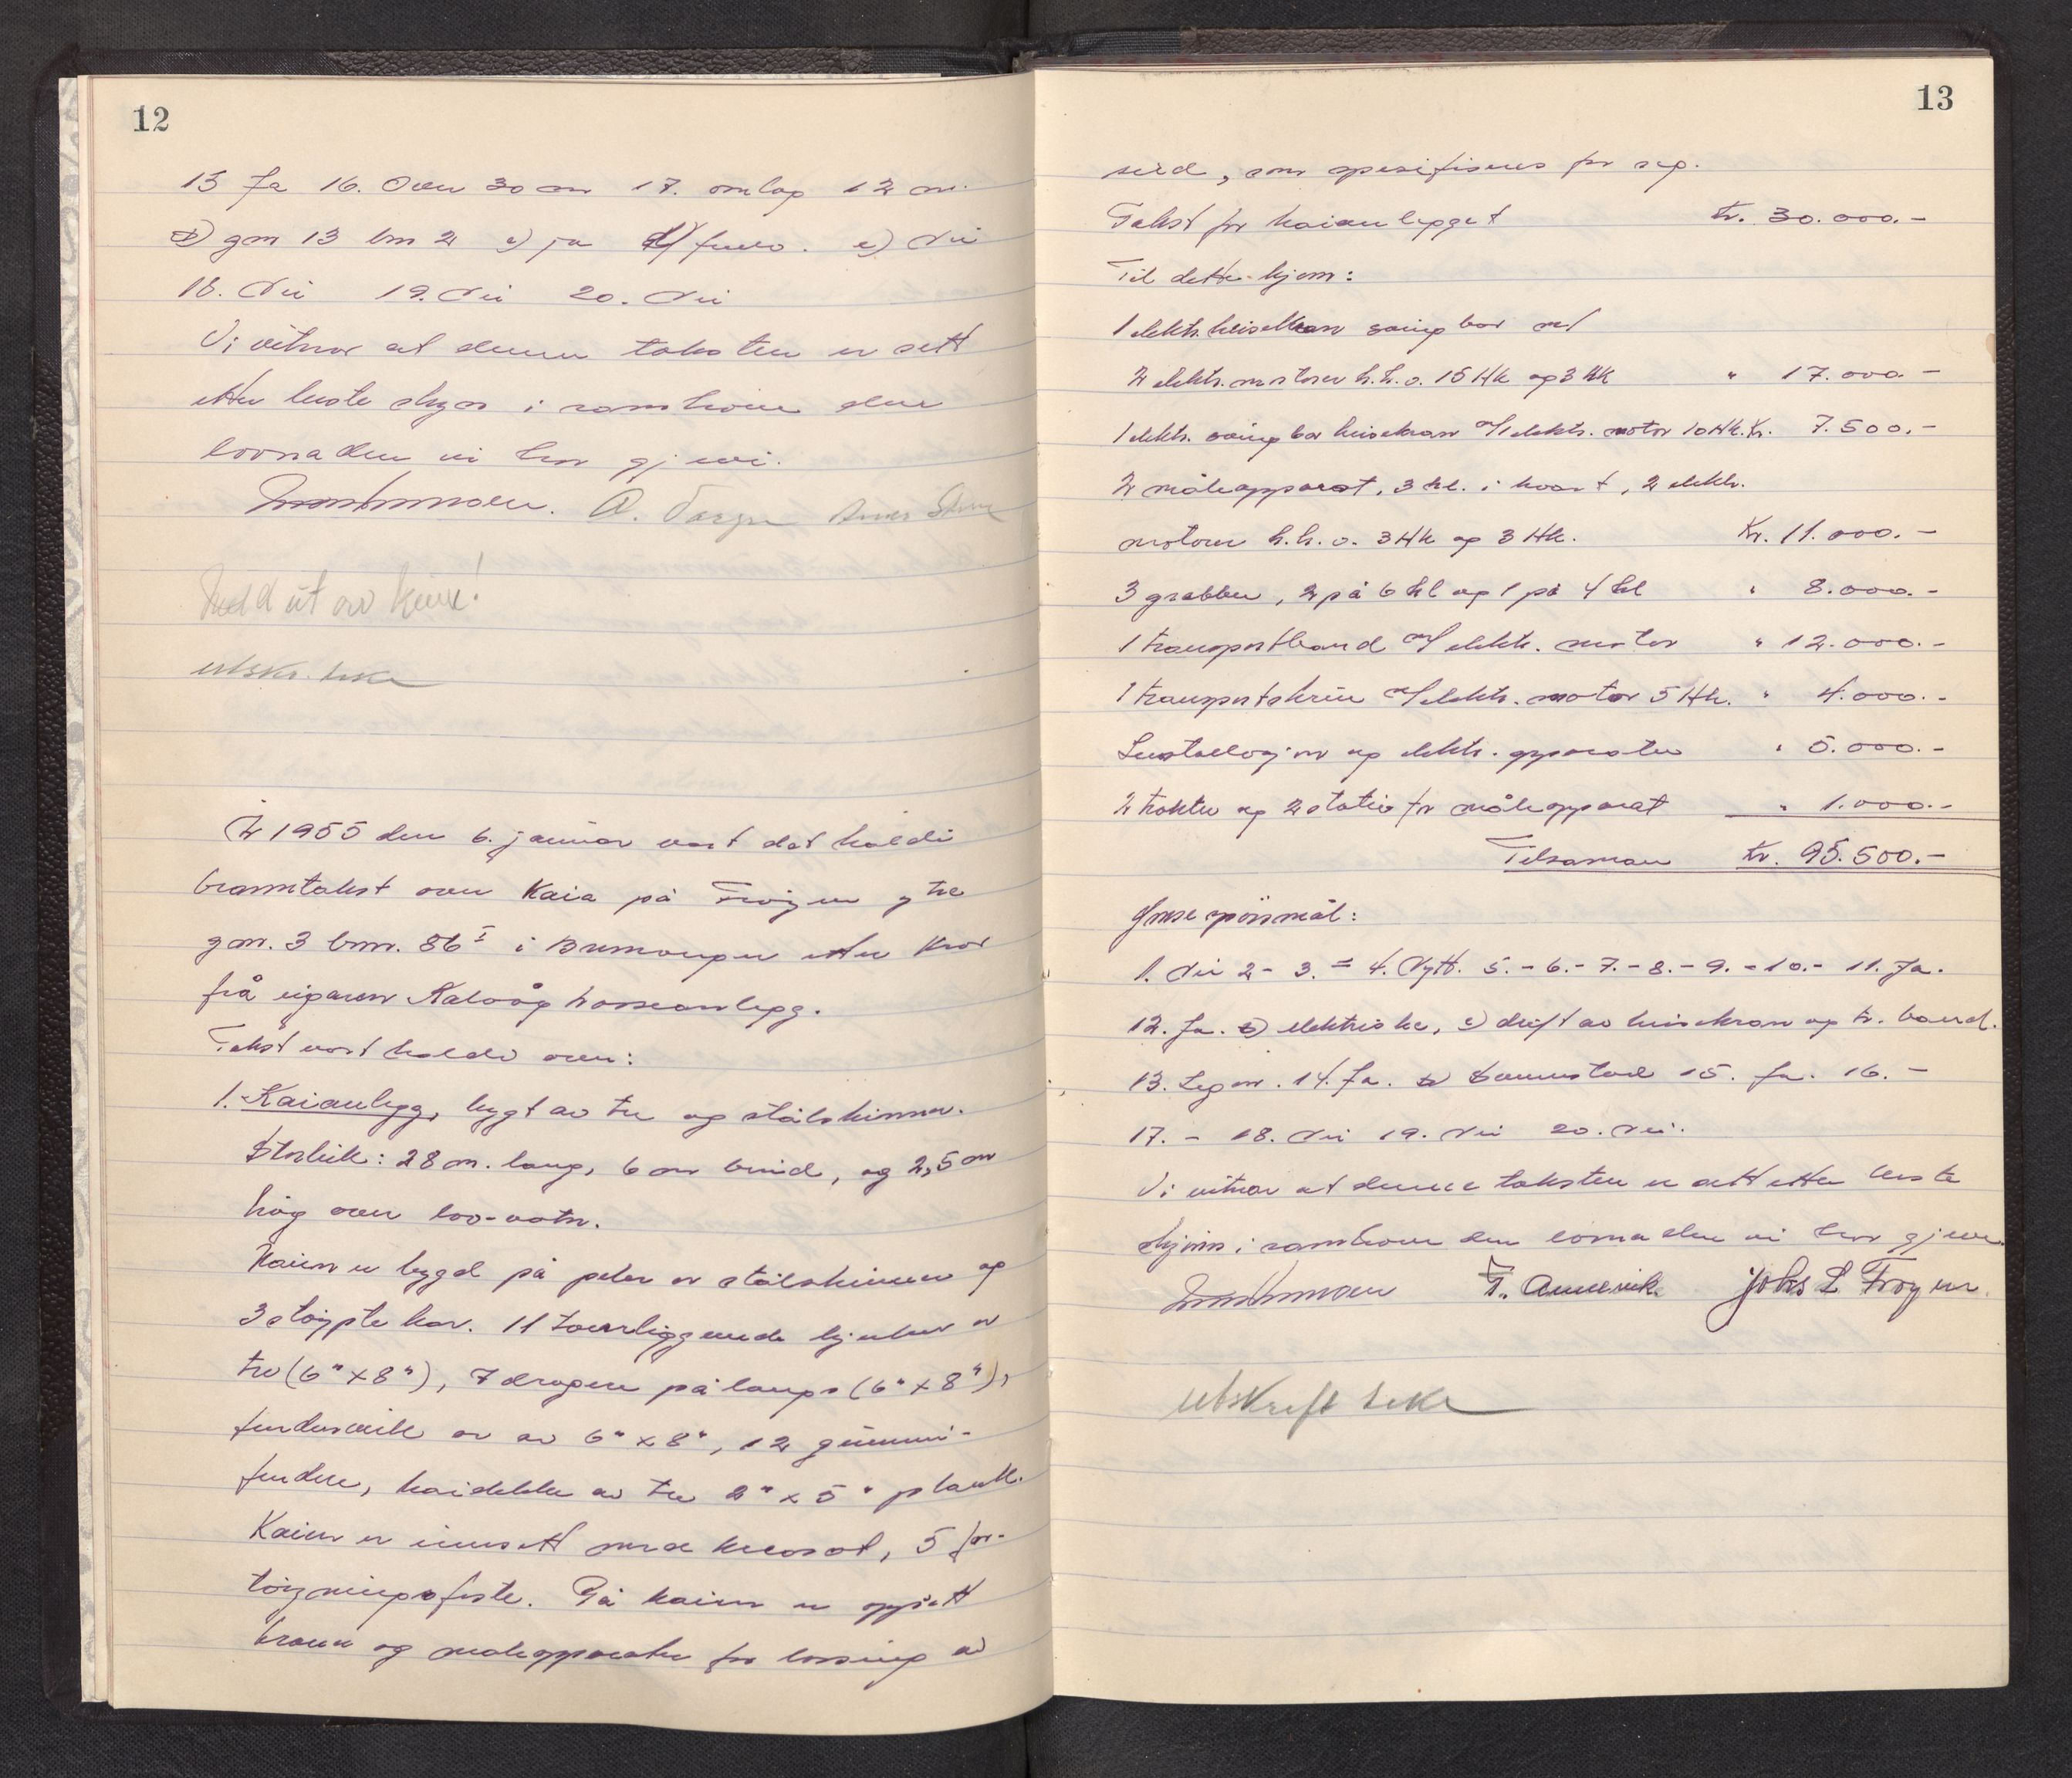 12
15 Ja 16. Over 30 m 17. omlag 12 m.
b) gnr 13 bnr 2 c) ja d) furu. e) Nei
18. Nei 19. Nei 20. Nei
Vi vitnar at denne taksten er sett
etter beste skyn i samhøve den
lovnaden vi har gjevi.
ut av
utskr. teke
År 1955 den 6. januar vart det haldi
branntakst over Kaia på Frøyen ytre
gnr. 3 bnr. 86 I i Bremanger etter krav
frå eigaren Kalvåg vassanlegg.
Takst vart haldi over:
1. Kaianlegg, bygt av tre og stålskinner.
Storleik: 28 m. lang, 6 m breid, og 2,5 m
høg over lav-vatn.
Kaien er bygd på peler av stålskinner og
3 støypte kar. 11 tverrliggende bjelker av
tre (6" x 8"), 7 dragere på langs (6" x 8"),
fenderverk er av 6" x 8", 12 gummi-
fendere, kaidekke av tre 2" x 5" plank.
Kaien er innsett med kreosot, 5 for-
tøyningsfeste. På kaien er oppsett
kraner og måleapparater for lossing av
13
sild, som spesifiseres for seg.
Takst for kaianlegget Kr. 30.000.-
Til dette kjem:
1 elektr. heisekran svingbar med
2 elektr. motorer h.h.v. 15 Hk og 3 Hk " 17.000.-
1 elektr. svingbar heisekran m/1 elektr. motor 10 Hk. Kr. 7.500.-
2 måleapparat, 3 hl. i kvart, 2 elektr.
motorer h.h.v. 3 Hk og 3 Hk. Kr. 11.000.-
3 grabber, 2 på 6 hl og 1 på 4 hl " 8.000.-
1 transportband m/ elektr. motor " 12.000.-
1 transportskrue m/ elektr. motor 5 Hk. " 4.000.-
Installasjon og elektr. apparater " 5.000.-
2 trakter og 2 stativ for måleapparat " 1.000.-
Tilsaman Kr. 95.500.-
Ymse spørsmål:
1. Nei 2- 3.= 4. Nytt. 5.- 6.- 7.- 8.- 9.- 10.- 11. Ja.
12. Ja. b) elektriske, c) drift av heisekran og tr. band.
13. Ingen. 14. Ja. b) Brannstad 15. Ja. 16.-
17. - 18. Nei 19. Nei 20. Nei.
Vi vitnar at denne taksten er sett etter beste
skjøn i samhøve den lovnaden vi har gjeve.
Johs L Frøyen.
utskrift teke